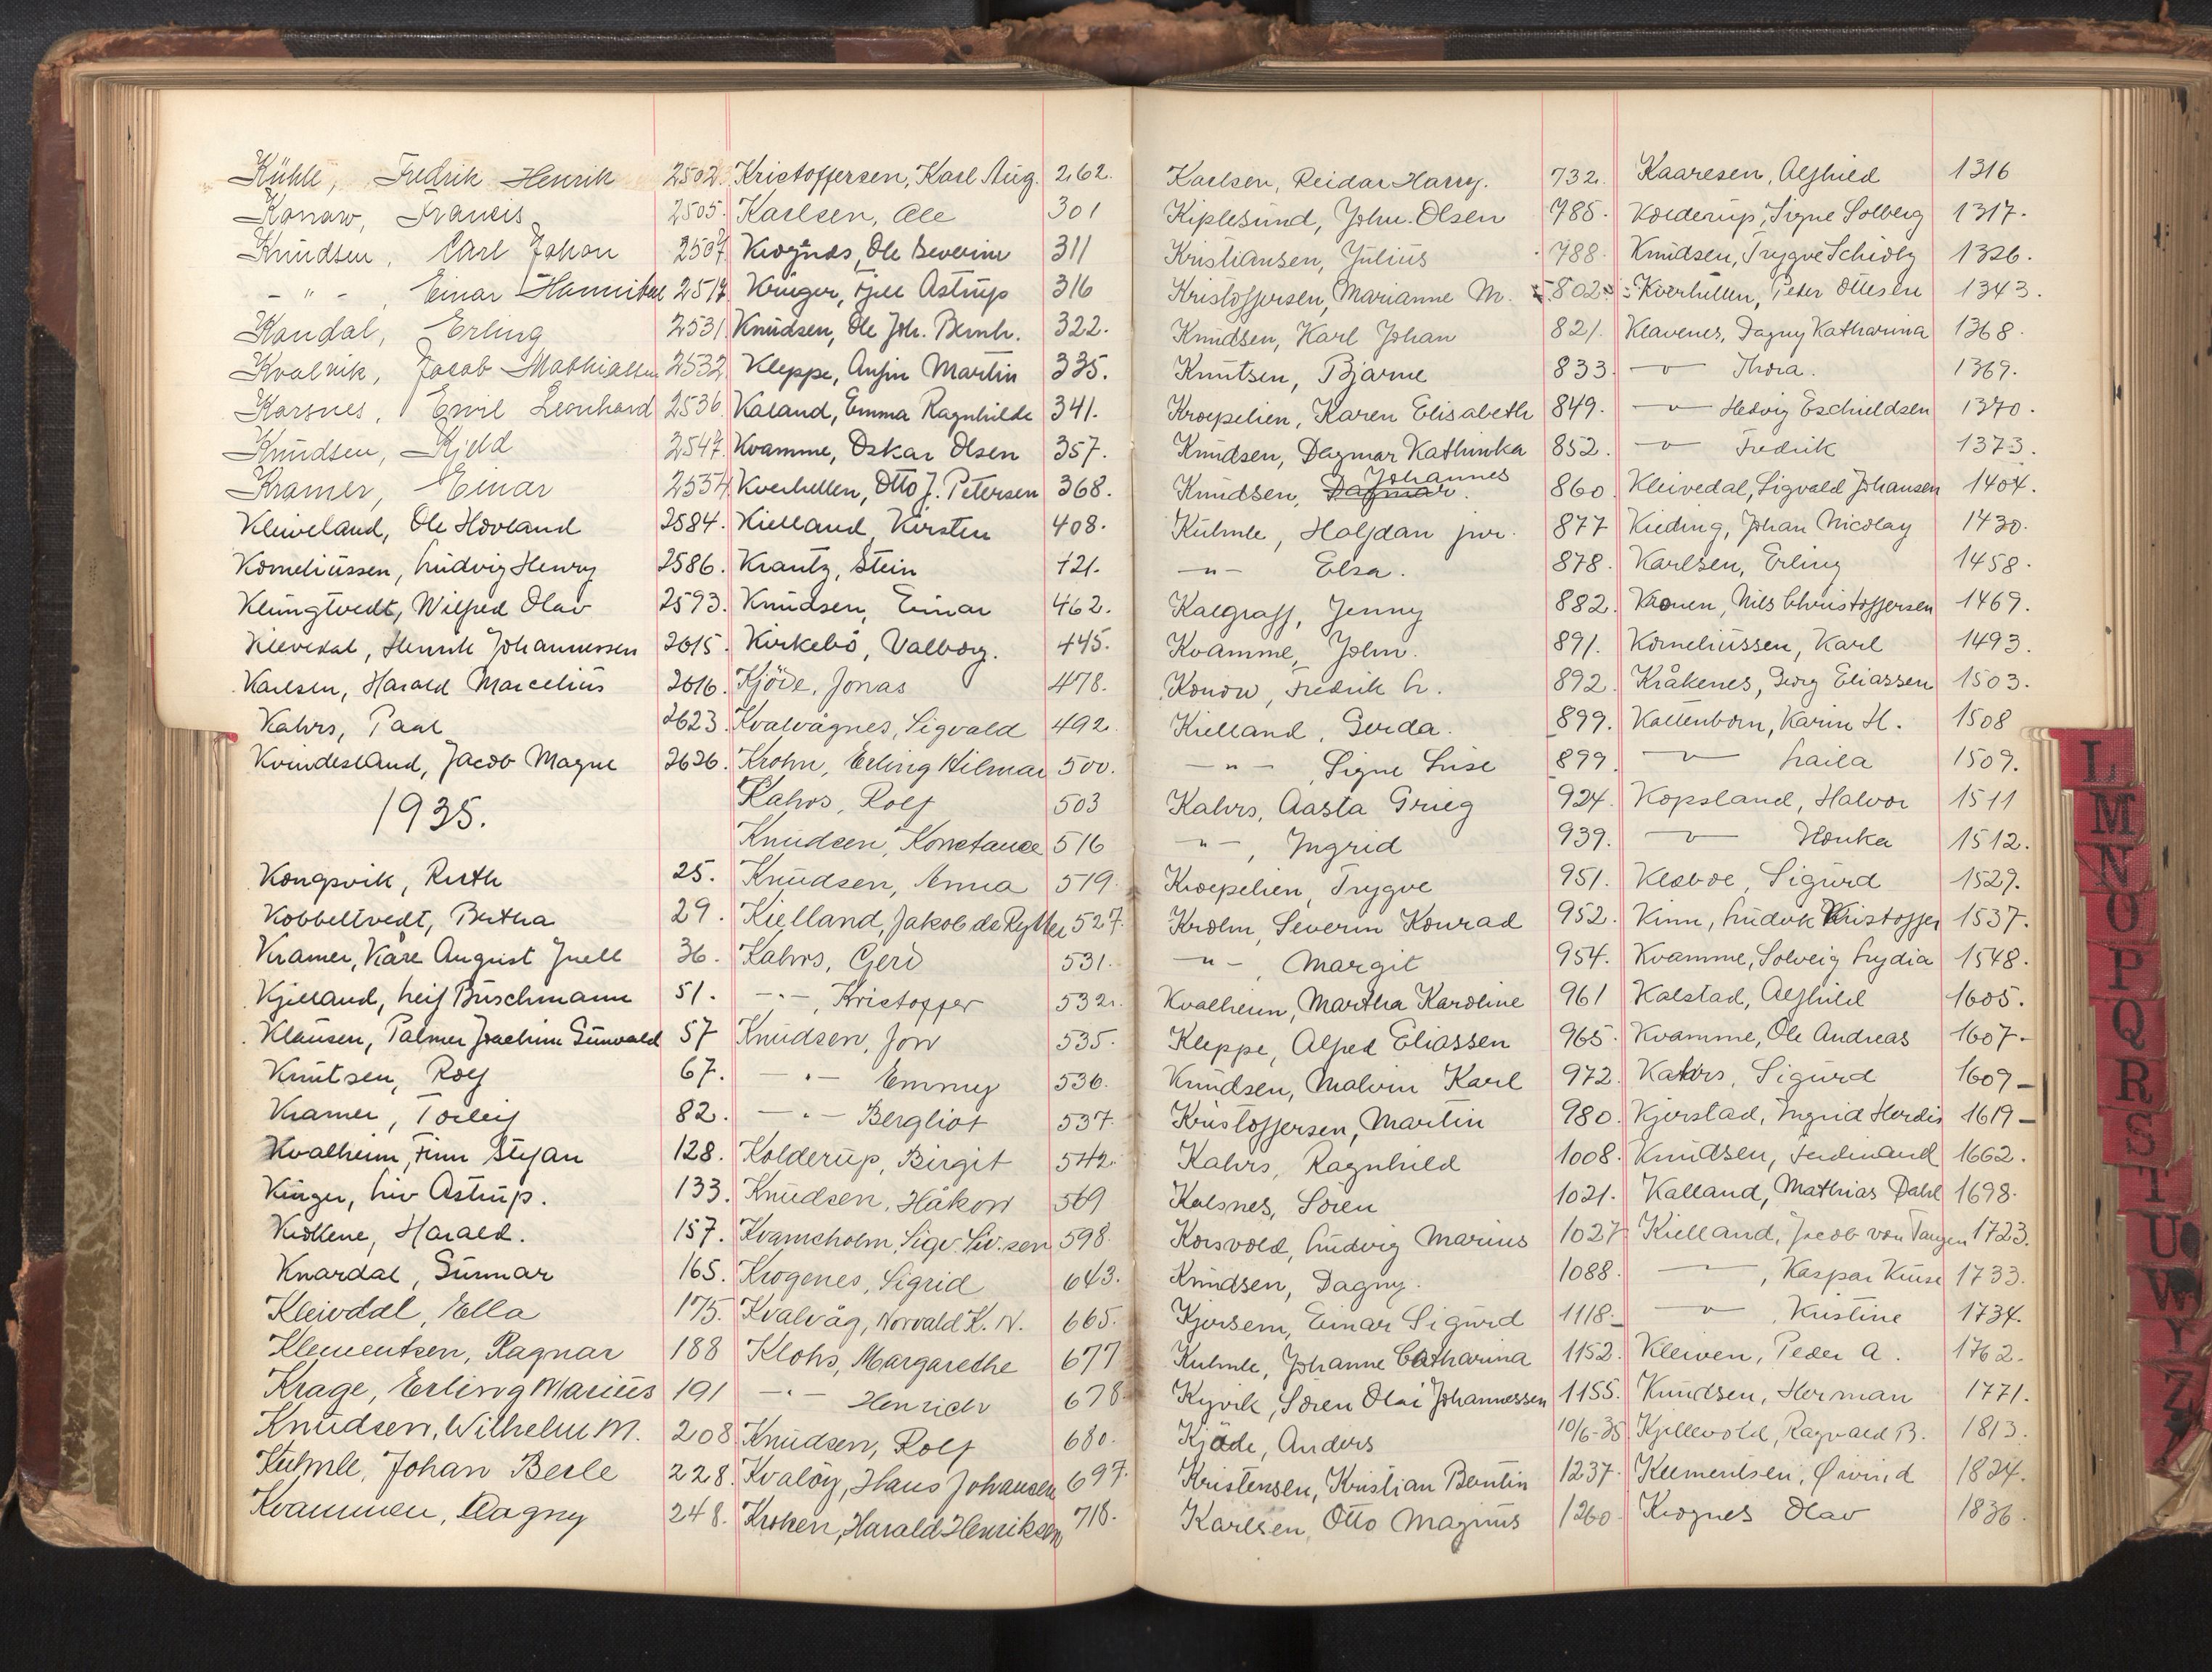 Kühle, Fredrik Henrik 2502.
Konow, Francis 2505.
Knudsen, Carl Johan 2507
- " - , Einar Hannibal 2517
Kandal, Erling 2531
Kvalvik, Jacob Mathiassen 2532
Korsnes, Emil Leonhard 2536
Knudsen, Kjeld 2547
Kramer, Einar 2554
Kleiveland, Ole Hovland 2584.
Korneliussen, Ludvig Henry 2586.
Klungtvedt, Wilfred Olav 2593.
Kleivedal, Henrik Johannessen 2615.
Karlsen, Harald Marcelius 2616.
Kahrs, Paal 2623.
Kvindesland, Jacob Magne 2626.
1935.
Kongsvik, Ruth 25.
Kobbeltvedt, Bertha 29.
Kramer, Kåre August Juell 36.
Kjelland, Leif Buschmann 51.
Klausen, Palmer Joachim Gunvald 57
Knutsen, Rolf 67.
Kramer, Torleif 82.
Kvalheim, Finn Stefan 128.
Krüger, Liv Astrup. 133.
Harald. 157.
Knardal, Gunnar 165.
Kleivdal, Ella 175.
Klementsen, Ragnar 188
Krage, Erling Marius 191
Knudsen, Wilhelm M. 208
Kuhnle, Johan Berle 228.
Kvammen, Dagny 248.
Kristoffersen, Karl Aug. 262.
Karlsen, Ole 301
Krognes, Ole Severin 311
Krüger, Fjell Astrup 316
Knudsen, Ole Joh. Bernh. 322.
Kleppe, Anfin Martin 335.
Kaland, Emma Ragnhilde 341.
Kvamme, Oskar Olsen 357.
Kverhellen, Otto J. Petersen 368.
Kielland, Kirsten 408.
Krantz, Stein 421.
Knudsen, Einar 462.
Kirkebö, Valborg. 445.
Kjöde, Jonas 478.
Kvalvågnes, Sigvald 492
Krohn, Erling Hilmar 500.
Kahrs, Rolf 503
Knudsen, Konstance 516
Knudsen, Anna 519.
Kielland, Jakob de Rytter 527.
Kahrs, Gerd 531.
- " - , Kristoffer 532.
Knudsen, Jon 535.
- " - Emmy 536.
- " - Bergliot 537.
Kolderup, Birgit 542.
Knudsen, Håkon 569
Kvamsholm, Sigv. Siv.sen 598.
Krogenes, Sigrid 643.
Kvalvåg, Norvald K. N. 665.
Klohs, Margarethe 677
- " - Henrich 678
Knudsen, Rolf 680.
Kvalöy, Hans Johansen 697.
Kroken, Harald Henriksen 718.
Karlsen, Reidar Harry. 732.
Kiplesund, John Olsen 785.
Kristiansen, Julius 788.
Kristoffersen, Marianne M. 802.
Knudsen, Karl Johan 821.
Knutsen, Bjarne 833.
Kroepelien, Karen Elisabeth 849.
Knudsen, Dagmar Kathinka 852.
Knudsen, Dagmar. Johannes 860.
Kuhnle, Halfdan jnr. 877
- " - Elsa. 878.
Kalgraff, Jenny 882.
Kvamme, John. 891.
Konow, Fredrik L. 892.
Kielland, Gerda. 899.
- " - , Signe Lise 899.
Kahrs, Aasta Grieg 924.
- " - , Ingrid 939.
Kroepelien, Trygve 951.
Krohn, Severin Konrad 952.
- " - , Margit 954.
Kvalheim, Martha Karoline 961
Kleppe, Alfred Eliassen 965.
Knudsen, Malvin Karl 972.
Kristoffersen, Martin 980.
Kahrs, Ragnhild 1008.
Kalsnes, Sören 1021.
Korsvold, Ludvig Marius 1027
Knudsen, Dagny. 1088.
Kjersem, Einar Sigurd 1118.
Kuhnle, Johanne Catharina 1152.
Kyvik, Sören Olai Johannessen 1155.
Kjøde, Anders 10/6-35
Kristensen, Kristian Bentin 1237.
Karlsen, Otto Magnus 1260
Kaaresen, Alfhild 1316
Kolderup, Signe Solberg 1317.
Knudsen, Trygve Schiøtz 1326.
Kverhellen, Peter Ottesen 1343.
Klavenes, Dagny Katharina 1368.
- " - Thora. 1369.
- " - Hedvig Eschieldsen 1370.
- " - Fredrik 1373.
Kleivedal, Sigvald Johansen 1404.
Kieding, Johan Nicolay 1430.
Karlsen, Erling 1458.
Kronen, Nils Christoffersen 1469.
Korneliussen, Karl 1493.
Kråkenes, Georg Eliassen 1503.
Kaltenborn, Karin H. 1508
- " - Laila 1509.
Kopsland, Halvor 1511
- " - 1512.
Klæboe, Sigurd 1529.
Kinn, Ludvik Kristoffer 1537.
Kvamme, Solveig Lydia 1548.
Kalstad, Alfhild 1605.
Kvamme, Ole Andreas 1607.
Kahrs, Sigurd 1609
Kjerstad, Ingrid Herdis 1619
Knudsen, Ferdinand 1662.
Kalland, Mathias Dahl 1698.
Kielland, Jacob von Tangen 1723.
- " - , Kaspar Kruse 1733.
- " - , Kristine 1734.
Kleiven, Peder A. 1762.
Knudsen, Herman 1771.
Kjellevold, Ragvald B. 1813.
Klementsen, Øivind 1824.
Krognes Olav 1836.
L
M
N
O
P
Q
R
S
T
U
W
Y
Z